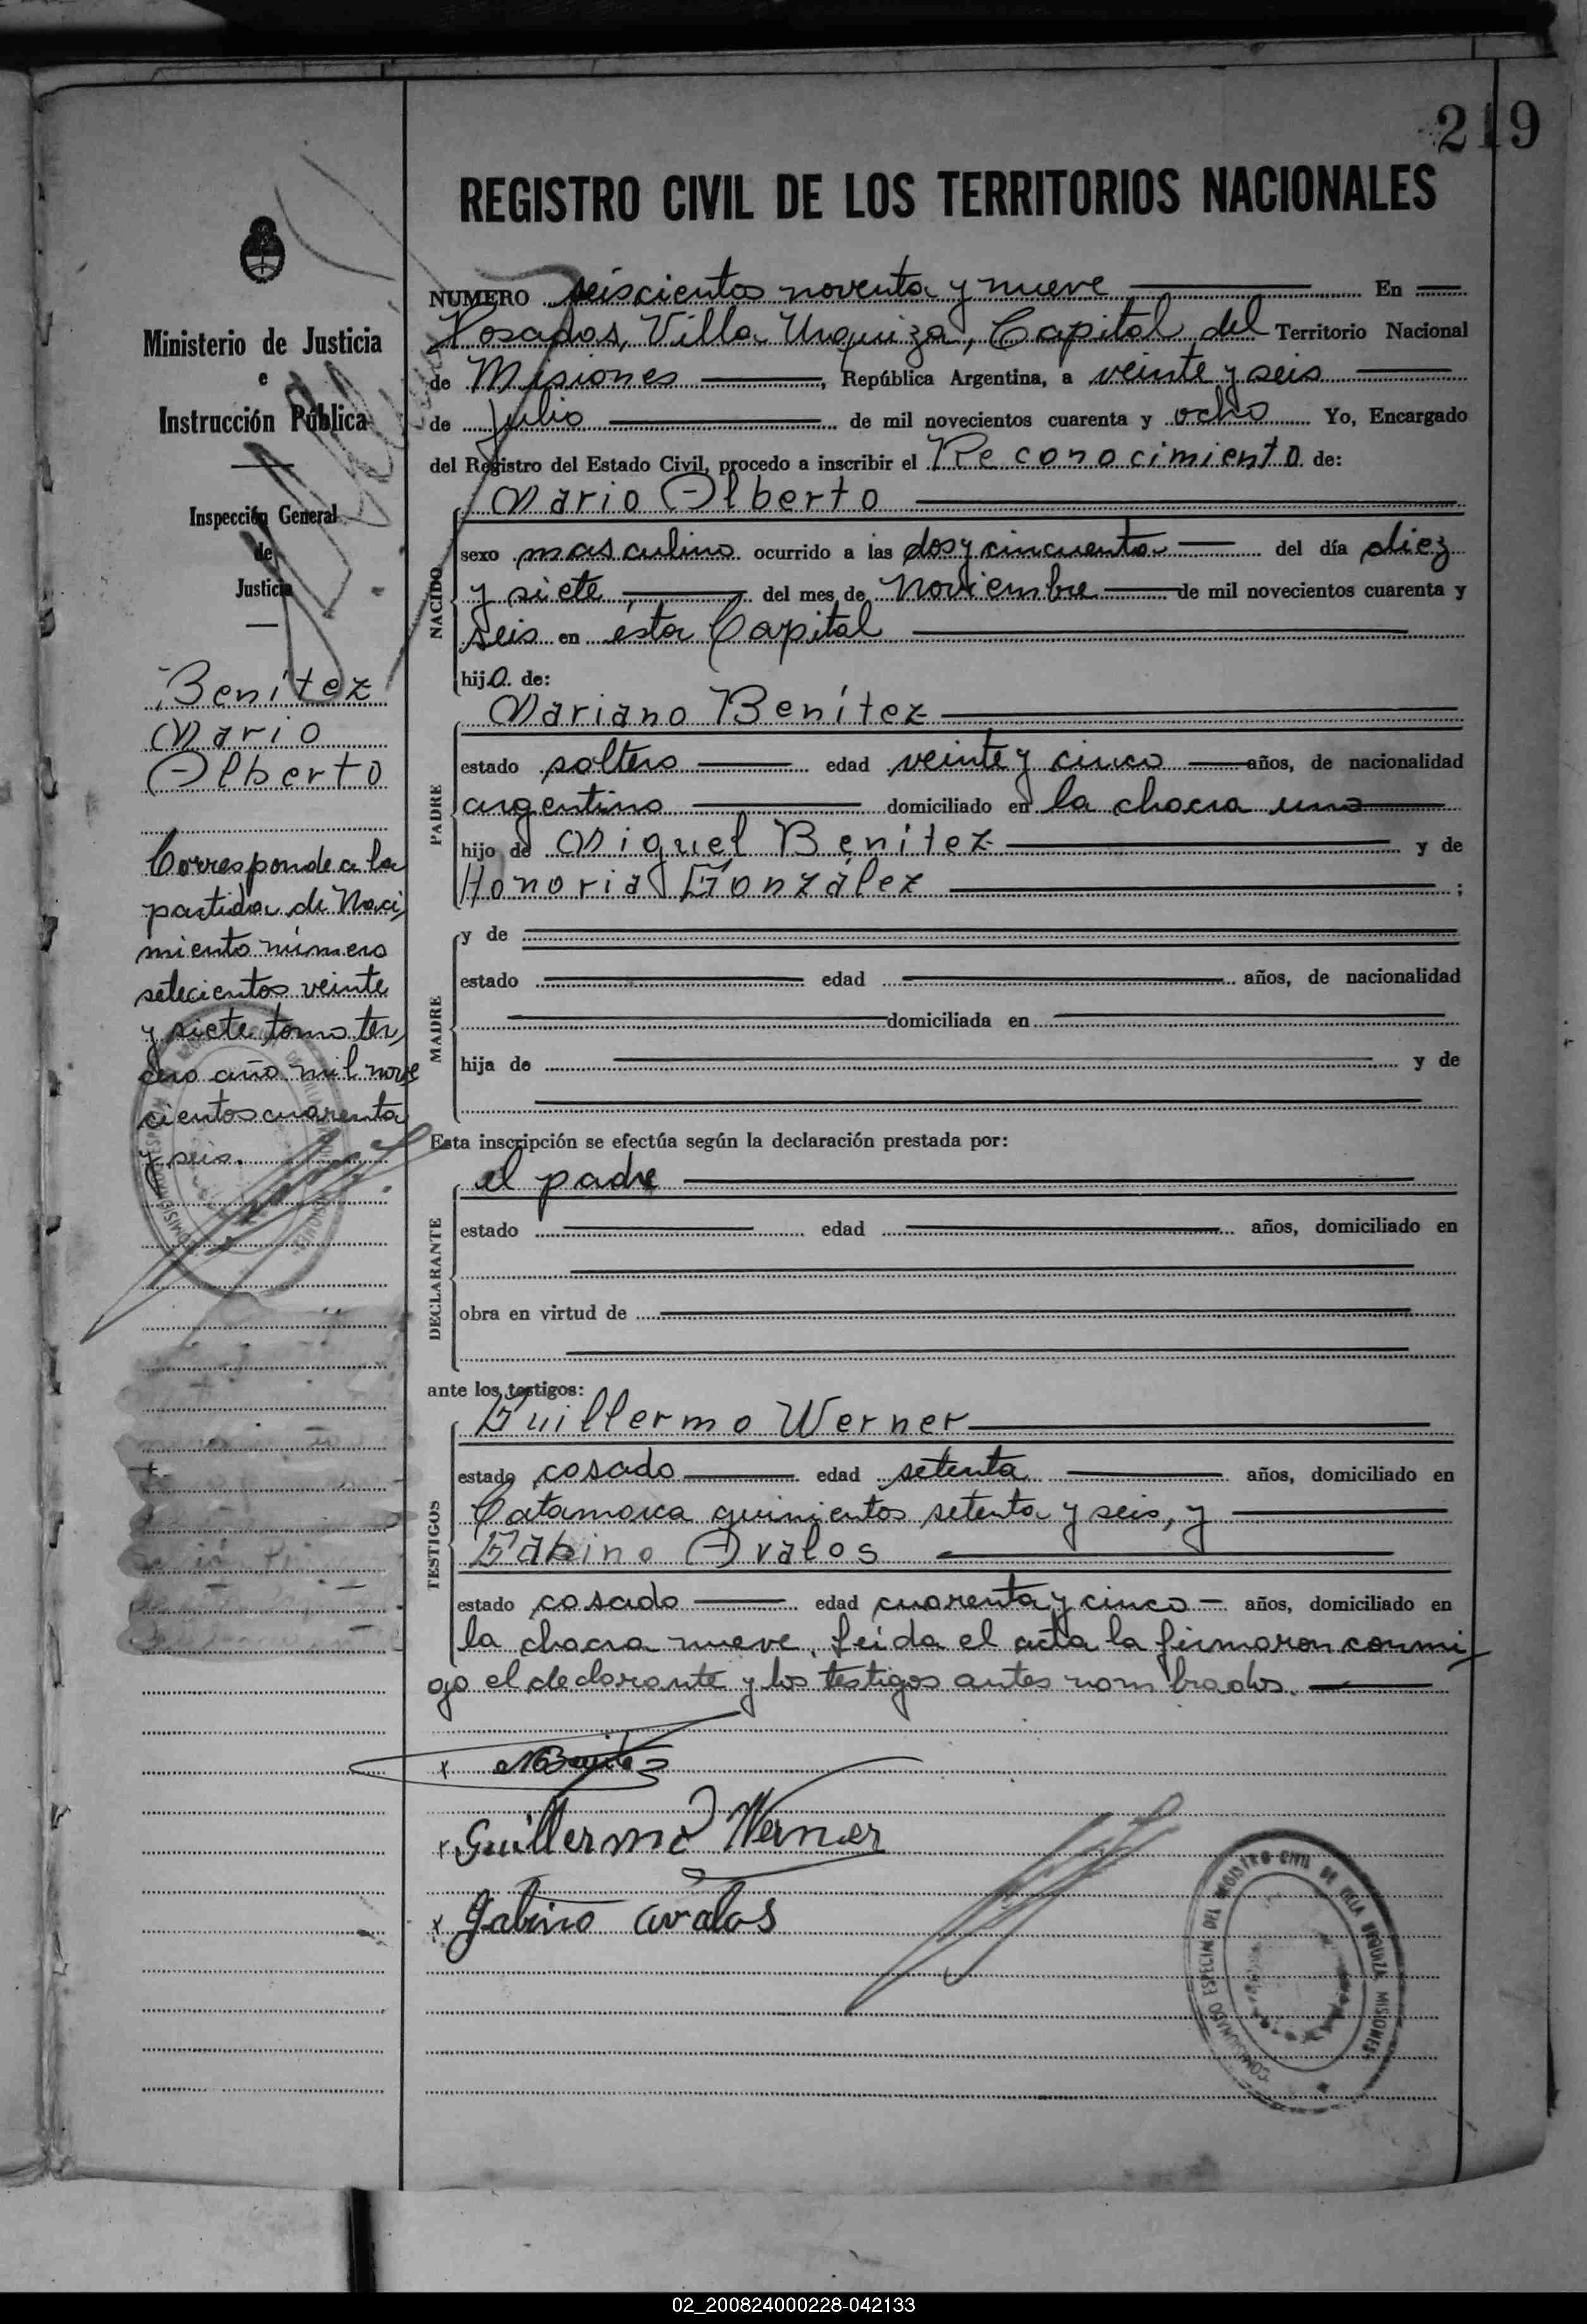 219
REGISTRO CIVIL DE LOS TERRITORIOS NACIONALES
NUMERO seiscientos noventa y nueve En
Posadas, Villa Urquiza, Capital del Territorio Nacional
de Misiones, República Argentina, a veinte y seis
de Julio de mil novecientos cuarenta y ocho Yo, Encargado
del Registro del Estado Civil, procedo a inscribir el Reconocimiento de:
NACIDO
Mario Alberto
sexo masculino ocurrido a las dos y cincuenta del día diez
y siete del mes de Noviembre de mil novecientos cuarenta y
seis en esta Capital
hijo de:
PADRE
Mariano Benítez
estado soltero edad veinte y cinco años, de nacionalidad
argentino domiciliado en la chacra uno
hijo de Miguel Benítez y de
Honoria González ;
MADRE
y de
estado edad años, de nacionalidad
domiciliada en
hija de y de
Esta inscripción se efectúa según la declaración prestada por:
DECLARANTE
el padre
estado edad años, domiciliado en
obra en virtud de
ante los testigos:
TESTIGOS
Guillermo Werner
estado casado edad setenta años, domiciliado en
Catamarca quinientos setenta y seis, y
Gabino Avalos
estado casado edad cuarenta y cinco años, domiciliado en
la chacra nueve. Leída el acta la firmaron conmi
go el declarante y los testigos antes nombrados.
x MBenitez
x Guillermo Werner
x Gabino Avalos
COMISIONADO ESPECIAL DEL REGISTRO CIVIL DE VILLA URQUIZA MISIONES
Ministerio de Justicia
e
Instrucción Pública
Inspección General
de
Justicia
Benítez
Mario
Alberto
Corresponde a la
partida de Naci
miento número
setecientos veinte
y siete tomo ter
cero año mil nove
cientos cuarenta
y seis.
02_200824000228-042133